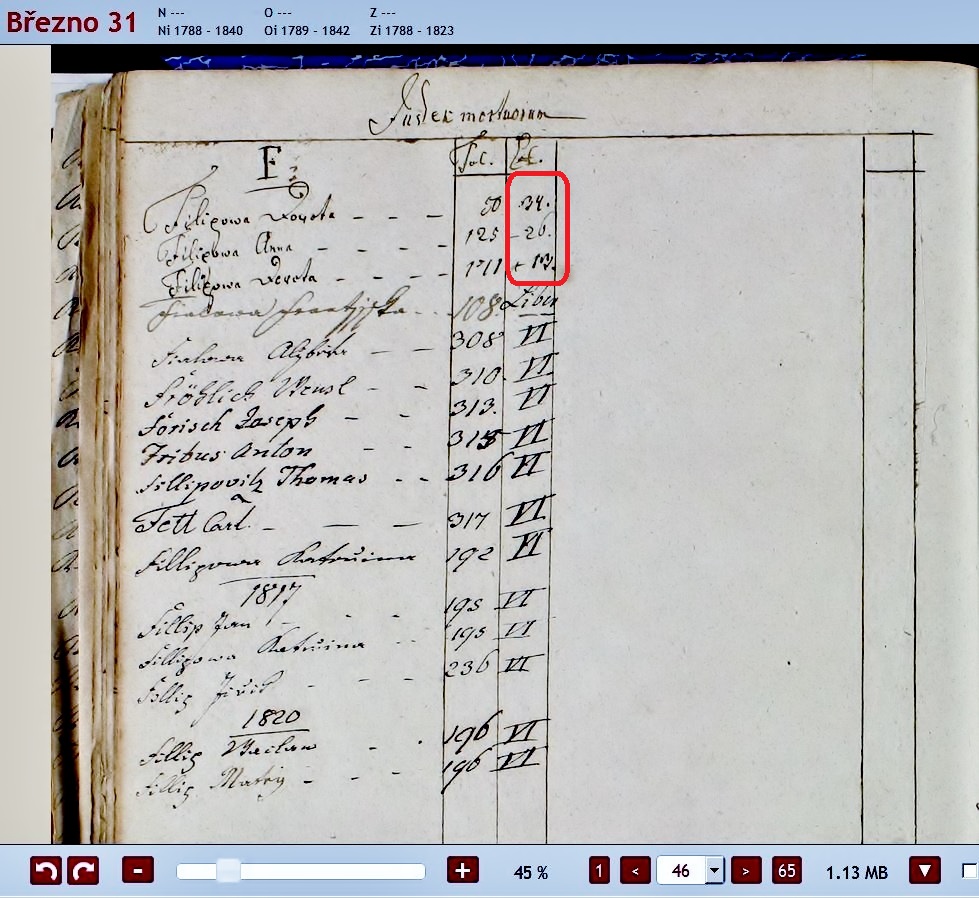 Březno 31
N --- O --- Z ---
Ni 1788 - 1840 Oi 1789 - 1842 Zi 1788 - 1823
Index mortuorum
F. Fol.
Filipowa Dorota - - - 50 34.
Filipowa Anna - - - - 125 - 26.
Filipowa Dorota - - - 1711
108. Liben
Fialowa Alžběta - - 308 VI
Fröhlich Wensl - - 310. VI
Förisch Joseph - - 313. VI
Fribus Anton - - 315 VI
Fillipovitz Thomas - - 316 VI
Fett Carl. - - - 317 VI
Fillipowa Katružina 192 VI
1817
Fillip Jan - - - 195 VI
Fillipowa Katružina - - 195 VI
Fillip Jiřik - - - 236 VI
1820
Fillip Waclaw - . 196 VI
Fillip Matěg - - - 196 VI
- + 45 % 1 < 46 > 65 1.13 MB